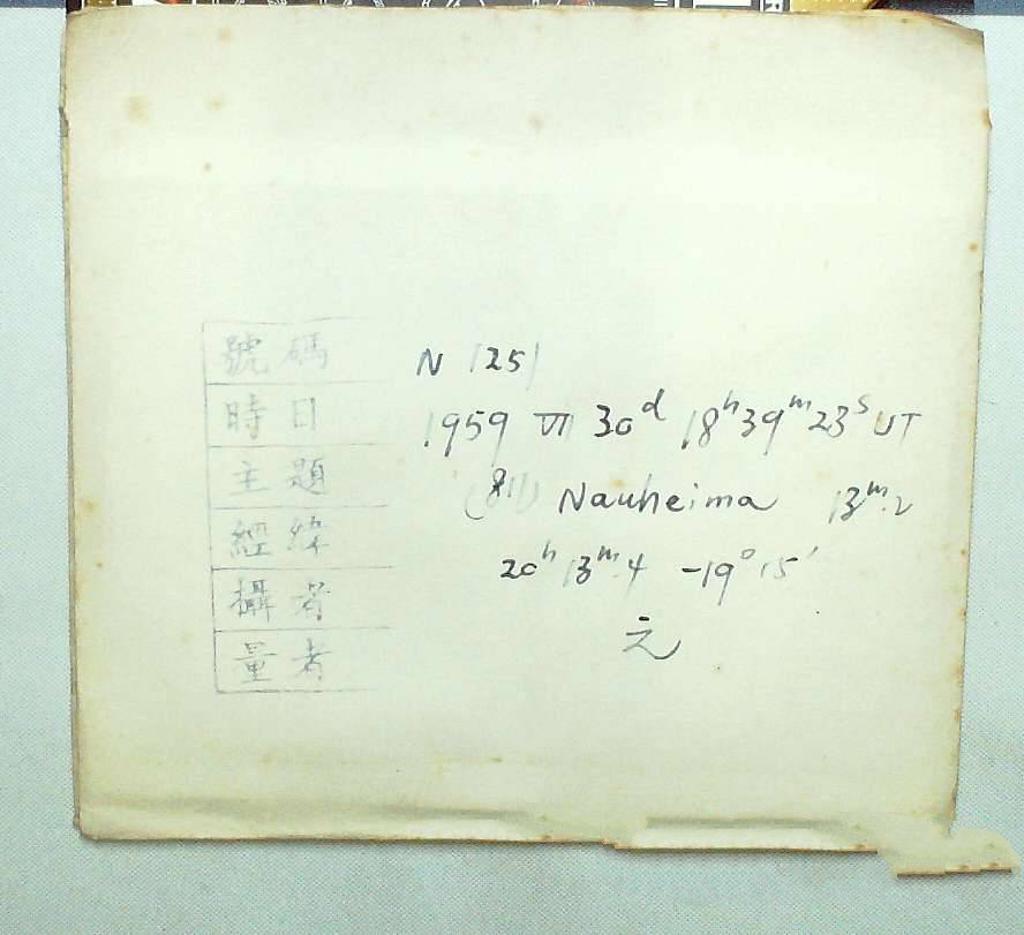 號碼 N 1251
時日 1959 VI 30ᵈ 18ʰ39ᵐ23ˢ UT
主題 (811) Nauheima 13ᵐ.2
經緯 20ʰ13ᵐ.4 -19°15′
攝者 元
量者